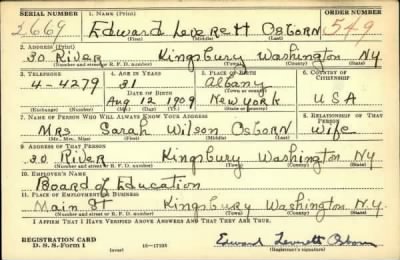 SERIAL NUMBER 1. NAME (Print) ORDER NUMBER
2669 Edward Leverett Osborn 549
(First) (Middle) (Last)
2. ADDRESS (Print)
30 River Kingsbury Washington NY
(Number and street or R. F. D. number) (Town) (County) (State)
3. TELEPHONE 4. AGE IN YEARS 5. PLACE OF BIRTH 6. COUNTRY OF CITIZENSHIP
4-4279 31 Albany
DATE OF BIRTH (Town or county)
Aug 12 1909 New York USA
(Exchange) (Number) (Mo.) (Day) (Yr.) (State or country)
7. NAME OF PERSON WHO WILL ALWAYS KNOW YOUR ADDRESS 8. RELATIONSHIP OF THAT PERSON
Mrs Sarah Wilson Osborn Wife
(Mr., Mrs., Miss) (First) (Middle) (Last)
9. ADDRESS OF THAT PERSON
30 River Kingsbury Washington NY
(Number and street or R. F. D. number) (Town) (County) (State)
10. EMPLOYER'S NAME
Board of Education
11. PLACE OF EMPLOYMENT OR BUSINESS
Main St Kingsbury Washington N.Y.
(Number and street or R. F. D. number) (Town) (County) (State)
I AFFIRM THAT I HAVE VERIFIED ABOVE ANSWERS AND THAT THEY ARE TRUE.
REGISTRATION CARD
D. S. S. Form 1 (over) 16—17105 Edward Leverett Osborn
(Registrant's signature)